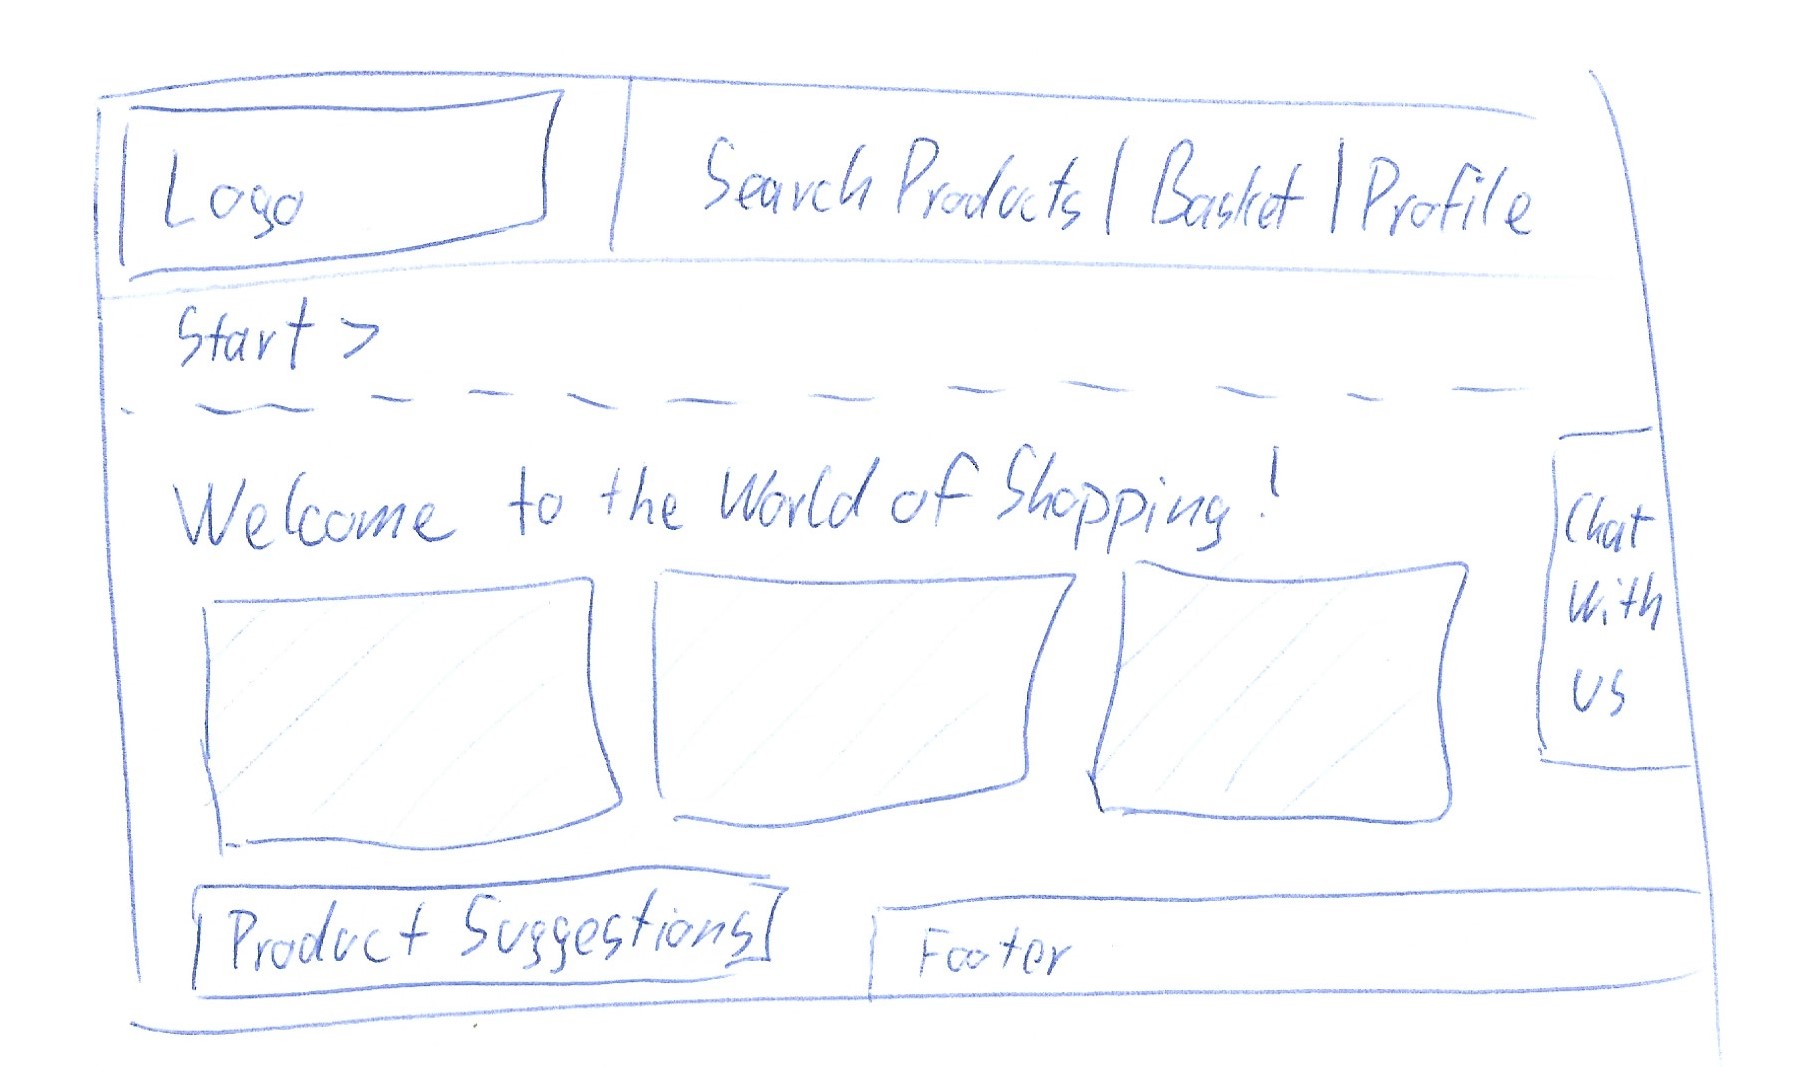 Logo
Search Products | Basket | Profile
Start >
Welcome to the World of Shopping!
Chat
With
us
Product Suggestions
Footer